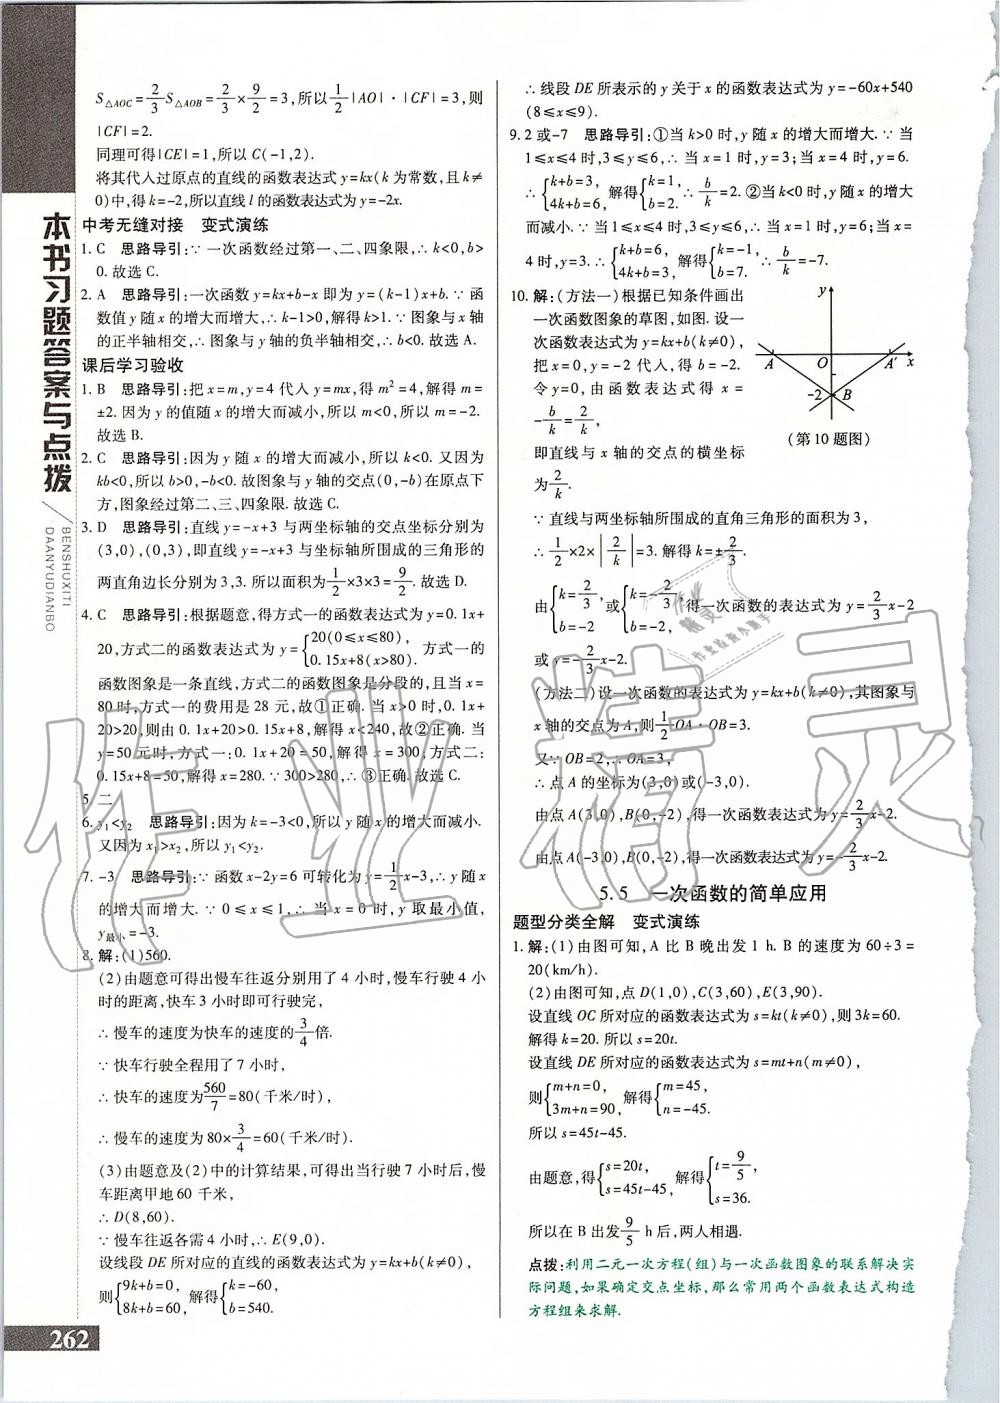 本书习题答案与点拨
BENSHUXITI
DAANYUDIANBO
S△AOC=2/3 S△AOB=2/3×9/2=3,所以1/2|AO|·|CF|=3,则
|CF|=2.
同理可得|CE|=1,所以 C(-1,2).
将其代入过原点的直线的函数表达式 y=kx(k 为常数,且 k≠
0)中,得 k=-2,所以直线 l 的函数表达式为 y=-2x.
中考无缝对接 变式演练
1. C 思路导引:∵ 一次函数经过第一、二、四象限,∴ k<0,b>
0. 故选 C.
2. A 思路导引:一次函数 y=kx+b-x 即为 y=(k-1)x+b. ∵ 函
数值 y 随 x 的增大而增大,∴ k-1>0,解得 k>1. ∵ 图象与 x 轴
的正半轴相交,∴ 图象与 y 轴的负半轴相交,∴ b<0. 故选 A.
课后学习验收
1. B 思路导引:把 x=m,y=4 代入 y=mx,得 m²=4,解得 m=
±2. 因为 y 的值随 x 的增大而减小,所以 m<0,所以 m=-2.
故选 B.
2. C 思路导引:因为 y 随 x 的增大而减小,所以 k<0. 又因为
kb<0,所以 b>0,-b<0. 故图象与 y 轴的交点(0,-b)在原点下
方,图象经过第二、三、四象限. 故选 C.
3. D 思路导引:直线 y=-x+3 与两坐标轴的交点坐标分别为
(3,0),(0,3),即直线 y=-x+3 与坐标轴所围成的三角形的
两直角边长分别为 3,3. 所以面积为1/2×3×3=9/2. 故选 D.
4. C 思路导引:根据题意,得方式一的函数表达式为 y=0.1x+
20,方式二的函数表达式为 y={20(0≤x≤80), 0.15x+8(x>80). 方式一的
函数图象是一条直线,方式二的函数图象是分段的,且当 x=
80时,方式一的费用是 28 元,故①正确. 当 x>0 时,0.1x+
20>20,则由 0.1x+20>0.15x+8,解得 x<240,故②正确. 当
y=50 元时,方式一:0.1x+20=50,解得 x=300;方式二:
0.15x+8=50,解得 x=280. ∵ 300>280,∴ ③正确. 故选 C.
5. 二
6. y₁<y₂ 思路导引:因为 k=-3<0,所以 y 随 x 的增大而减小.
又因为 x₁>x₂,所以 y₁<y₂.
7. -3 思路导引:∵ 函数 x-2y=6 可转化为 y=1/2x-3,∴ y 随 x
的增大而增大. ∵ 0≤x≤1,∴ 当 x=0 时,y 取最小值,
y最小=-3.
8. 解:(1)560.
(2)由题意可得出慢车往返分别用了 4 小时,慢车行驶 4 小
时的距离,快车 3 小时即可行驶完,
∴ 慢车的速度为快车的速度的3/4倍.
∵ 快车行驶全程用了 7 小时,
∴ 快车的速度为560/7=80(千米/时),
∴ 慢车的速度为 80×3/4=60(千米/时).
(3)由题意及(2)中的计算结果,可得出当行驶 7 小时后,慢
车距离甲地 60 千米,
∴ D(8,60).
∵ 慢车往返各需 4 小时,∴ E(9,0).
设线段 DE 所对应的直线的函数表达式为 y=kx+b(k≠0),
则{9k+b=0, 8k+b=60, 解得{k=-60, b=540.
262
∴ 线段 DE 所表示的 y 关于 x 的函数表达式为 y=-60x+540
(8≤x≤9).
9. 2 或-7 思路导引:①当 k>0 时,y 随 x 的增大而增大. ∵ 当
1≤x≤4 时,3≤y≤6,∴ 当 x=1 时,y=3;当 x=4 时,y=6.
∴ {k+b=3, 4k+b=6, 解得{k=1, b=2. ∴ b/k=2. ②当 k<0 时,y 随 x 的增大
而减小. ∵ 当 1≤x≤4 时,3≤y≤6,∴ 当 x=1 时,y=6;当 x=
4 时,y=3. ∴ {k+b=6, 4k+b=3, 解得{k=-1, b=7. ∴ b/k=-7.
10. 解:(方法一)根据已知条件画出
一次函数图象的草图,如图. 设一
次函数表达式为 y=kx+b(k≠0),
把 x=0,y=-2 代入,得 b=-2.
令 y=0,由函数表达式得 x=
-b/k=2/k,
即直线与 x 轴的交点的横坐标
为2/k.
y
A O A′ x
-2 B
(第 10 题图)
∵ 直线与两坐标轴所围成的直角三角形的面积为 3,
∴ 1/2×2×|2/k|=3. 解得 k=±2/3.
由{k=2/3, b=-2 或{k=-2/3, b=-2 得一次函数的表达式为 y=2/3x-2
或 y=-2/3x-2.
(方法二)设一次函数的表达式为 y=kx+b(k≠0),其图象与
x 轴的交点为 A,则1/2OA·OB=3.
又∵ OB=2,∴ OA=3,
∴ 点 A 的坐标为(3,0)或(-3,0).
由点 A(3,0),B(0,-2),得一次函数的表达式为 y=2/3x-2.
由点 A(-3,0),B(0,-2),得一次函数的表达式为 y=-2/3x-2.
5.5 一次函数的简单应用
题型分类全解 变式演练
1. 解:(1)由图可知,A 比 B 晚出发 1 h. B 的速度为 60÷3=
20(km/h).
(2)由图可知,点 D(1,0),C(3,60),E(3,90).
设直线 OC 所对应的函数表达式为 s=kt(k≠0),则 3k=60.
解得 k=20. 所以 s=20t.
设直线 DE 所对应的函数表达式为 s=mt+n(m≠0),
则{m+n=0, 3m+n=90, 解得{m=45, n=-45.
所以 s=45t-45.
由题意,得{s=20t, s=45t-45, 解得{t=9/5, s=36.
所以在 B 出发9/5 h 后,两人相遇.
点拨:利用二元一次方程(组)与一次函数图象的联系解决实
际问题,如果确定交点坐标,那么常用两个函数表达式构造
方程组来求解.
作业精灵